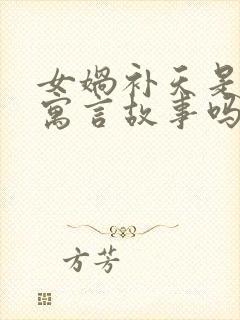 女娲补天是
寓言故事吗
方芳